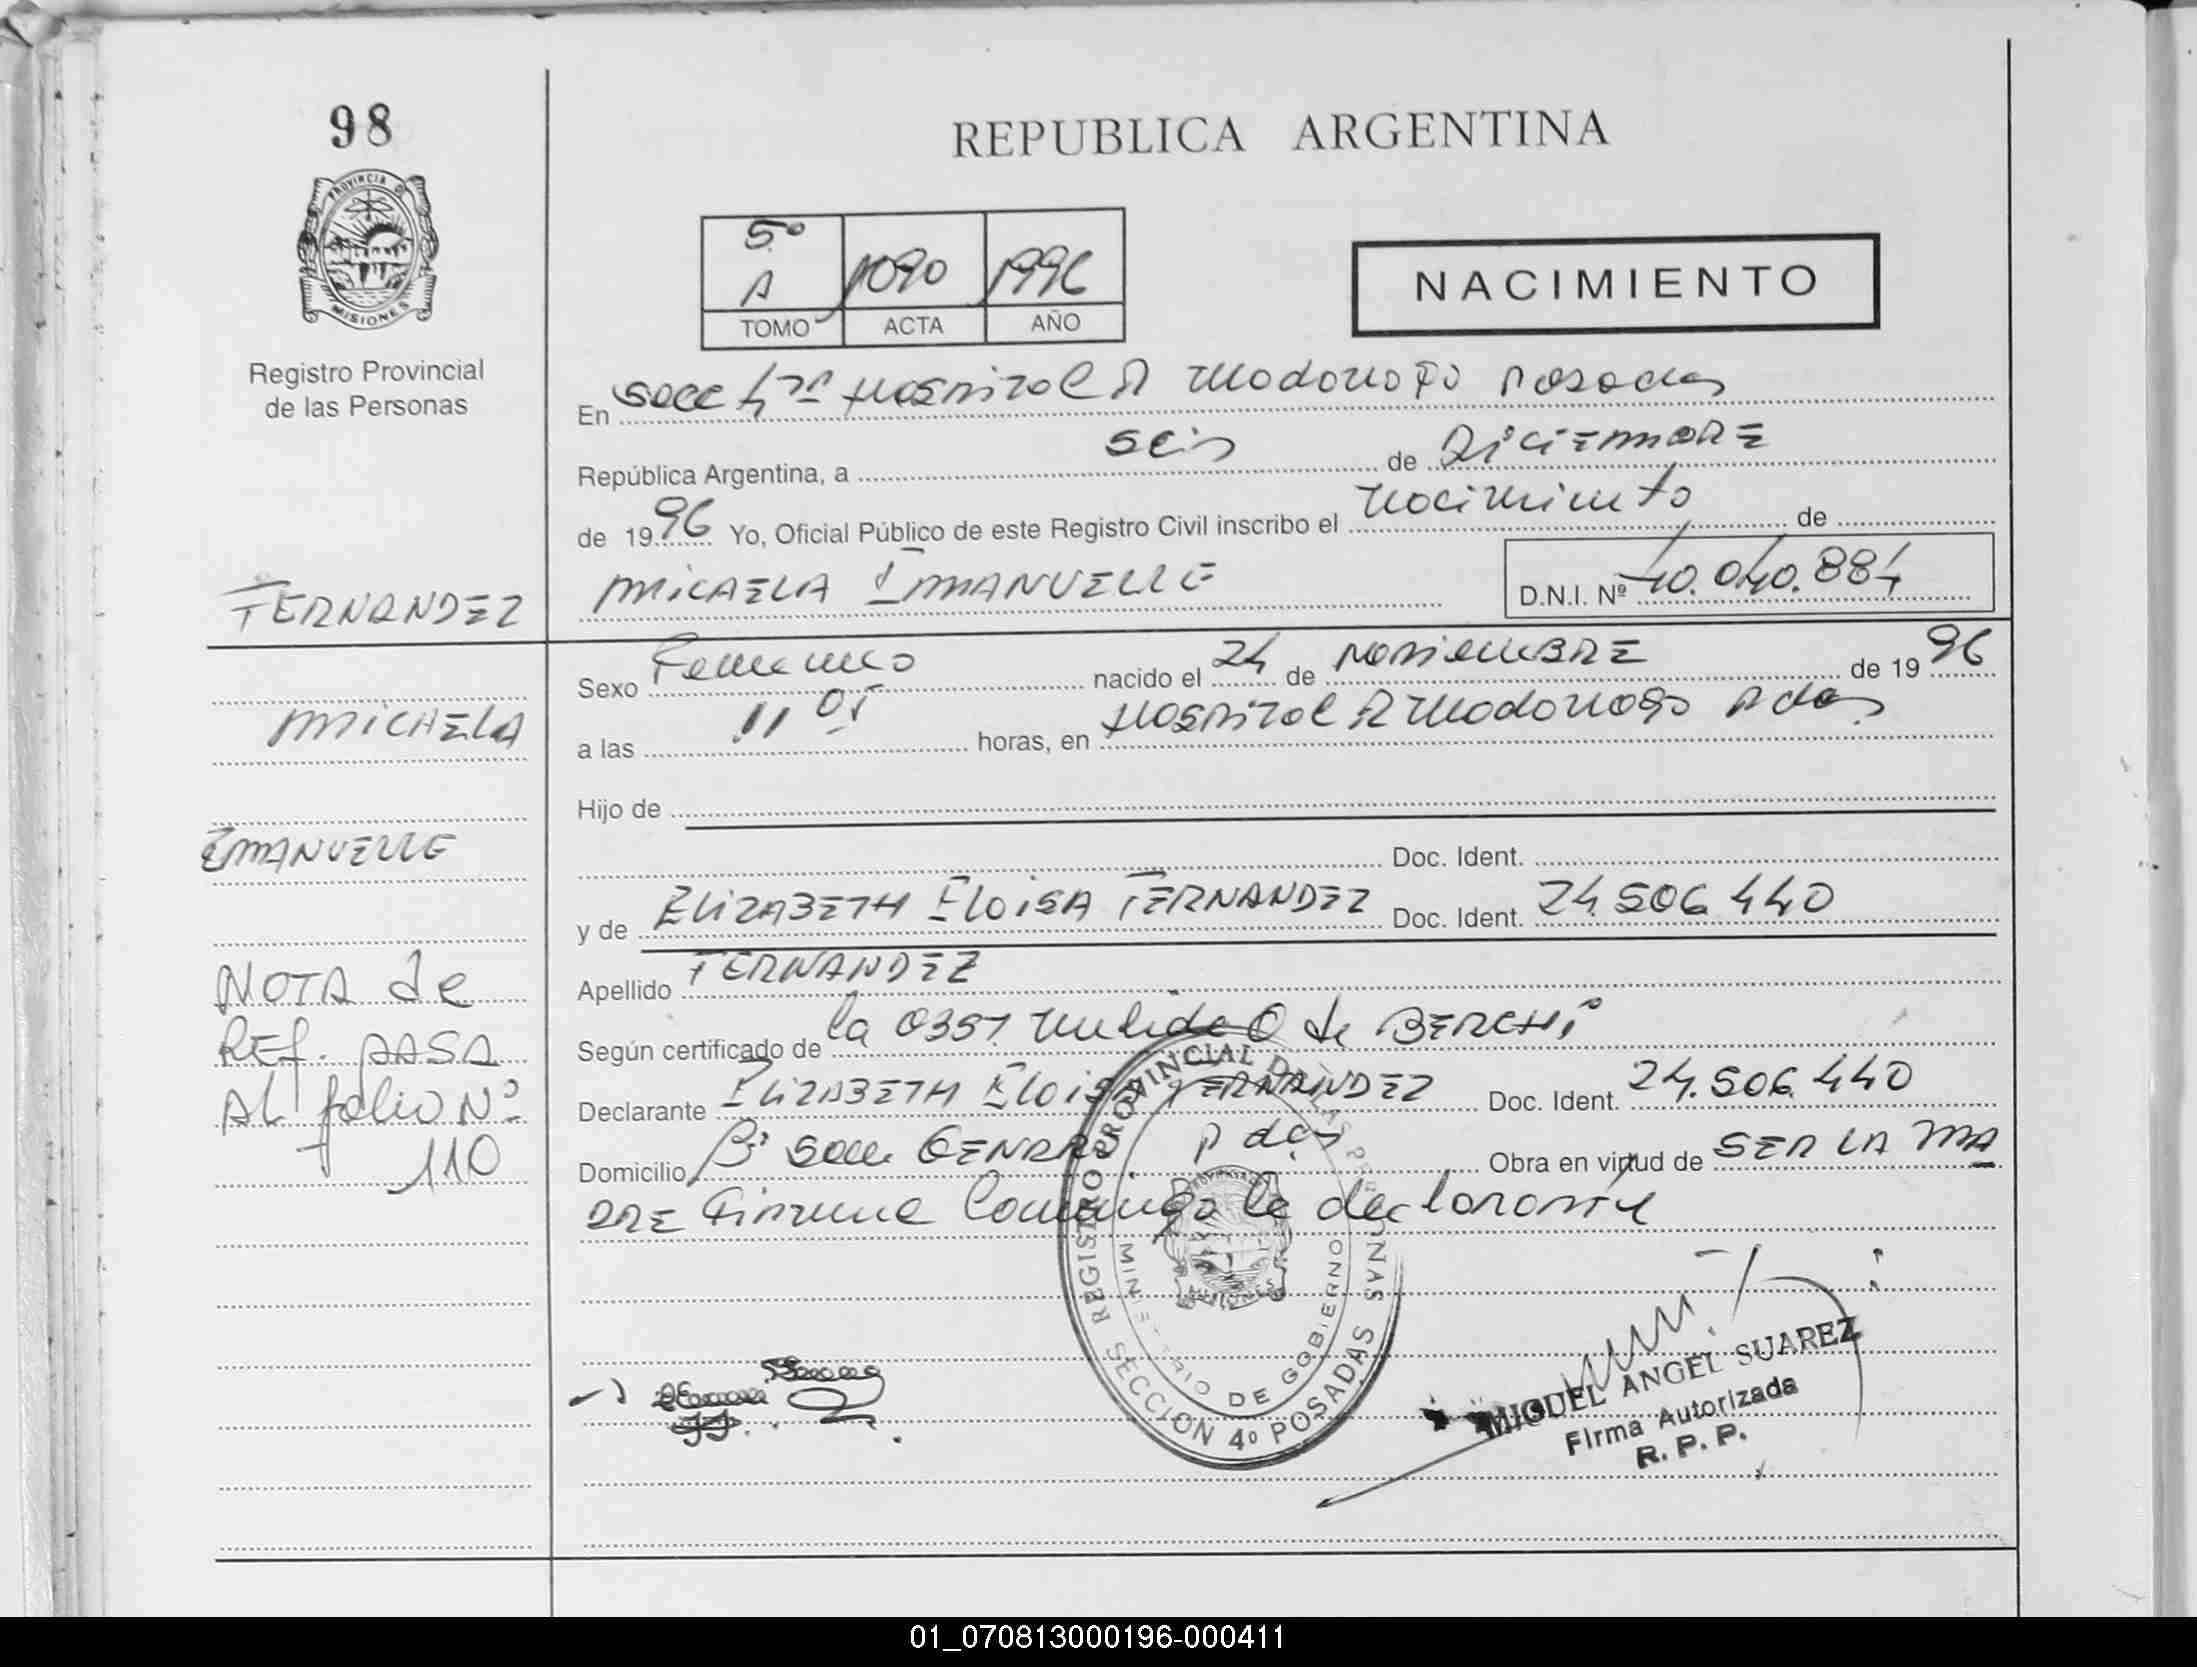 98
PROVINCIA D
MISIONES
Registro Provincial
de las Personas
FERNANDEZ
MICAELA
EMANUELLE
NOTA de
REF. PASA
AL folio Nº
110
REPUBLICA ARGENTINA
5º
A 1090 1996
TOMO ACTA AÑO
NACIMIENTO
En Secc 4ta Hospital R Madariaga Posadas
República Argentina, a seis de DICIEMBRE
de 1996 Yo, Oficial Público de este Registro Civil inscribo el nacimiento de
MICAELA EMANUELLE D.N.I. Nº 40.040.884
Sexo Femenino nacido el 24 de NOVIEMBRE de 1996
a las 11 05 horas, en Hospital R Madariaga Pdas
Hijo de
Doc. Ident.
y de ELIZABETH ELOISA FERNANDEZ Doc. Ident. 24.506.440
Apellido FERNANDEZ
Según certificado de la Obst. de BERCHI
Declarante ELIZABETH ELOISA FERNANDEZ Doc. Ident. 24.506.440
Domicilio Bº San GENARO Pdas Obra en virtud de SER LA MA
DRE Firma Conmigo la declarante
REGISTRO PROVINCIAL DE LAS PERSONAS
MINISTERIO DE GOBIERNO
MISIONES
SECCION 4º POSADAS
MIGUEL ANGEL SUAREZ
Firma Autorizada
R. P. P.
01_070813000196-000411